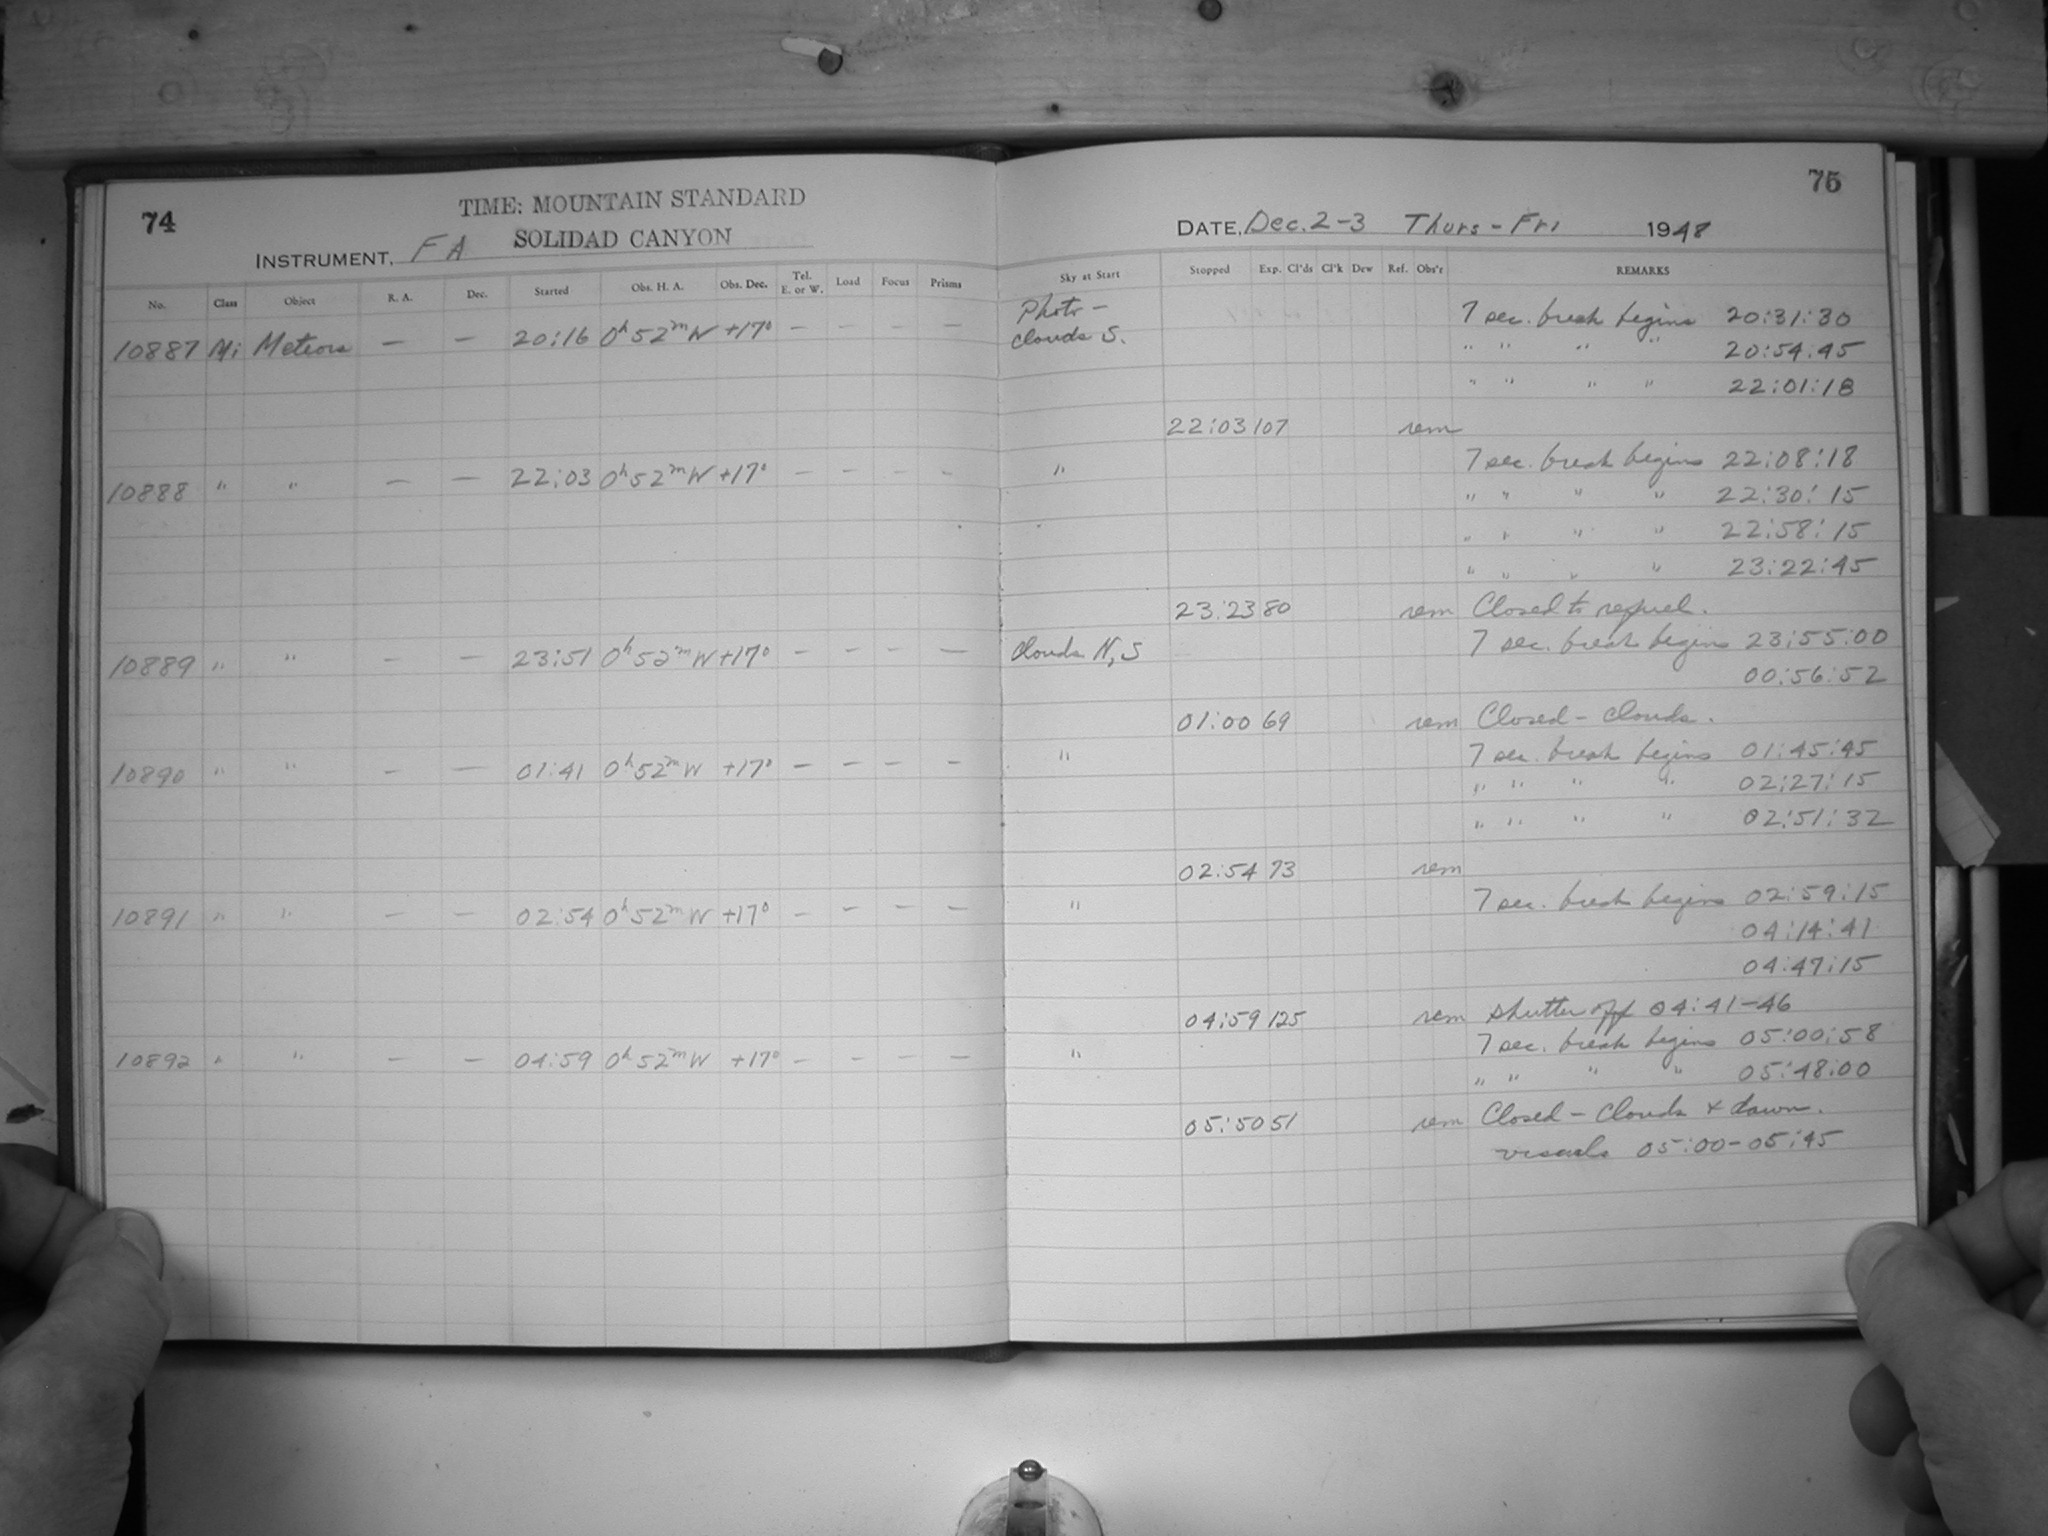 74
TIME: MOUNTAIN STANDARD
SOLIDAD CANYON
INSTRUMENT, FA
No. Class Object R. A. Dec. Started Obs. H. A. Obs. Dec. Tel. E. or W. Load Focus Prisms
10887 Mi Meteors — — 20:16 0h52mW +17° — — — —
10888 " " — — 22:03 0h52mW +17° — — — —
10889 " " — — 23:51 0h52mW +17° — — — —
10890 " " — — 01:41 0h52mW +17° — — — —
10891 " " — — 02:54 0h52mW +17° — — — —
10892 " " — — 04:59 0h52mW +17° — — — —
75
DATE, Dec. 2-3 Thurs-Fri 1948
Sky at Start Stopped Exp. Cl'ds Cl'k Dew Ref. Obs'r REMARKS
Photo – 7 sec. break begins 20:31:30
clouds S. " " " " 20:54:45
" " " " 22:01:18
22:03 107 rem
" 7 sec. break begins 22:08:18
" " " " 22:30:15
" " " " 22:58:15
" " " " 23:22:45
23:23 80 rem Closed to refuel.
Clouds N, S 7 sec. break begins 23:55:00
00:56:52
01:00 69 rem Closed – clouds.
" 7 sec. break begins 01:45:45
" " " " 02:27:15
" " " " 02:51:32
02:54 73 rem
" 7 sec. break begins 02:59:15
04:14:41
04:47:15
04:59 125 rem shutter off 04:41-46
" 7 sec. break begins 05:00:58
" " " " 05:48:00
05:50 51 rem Closed – Clouds + dawn.
visuals 05:00-05:45